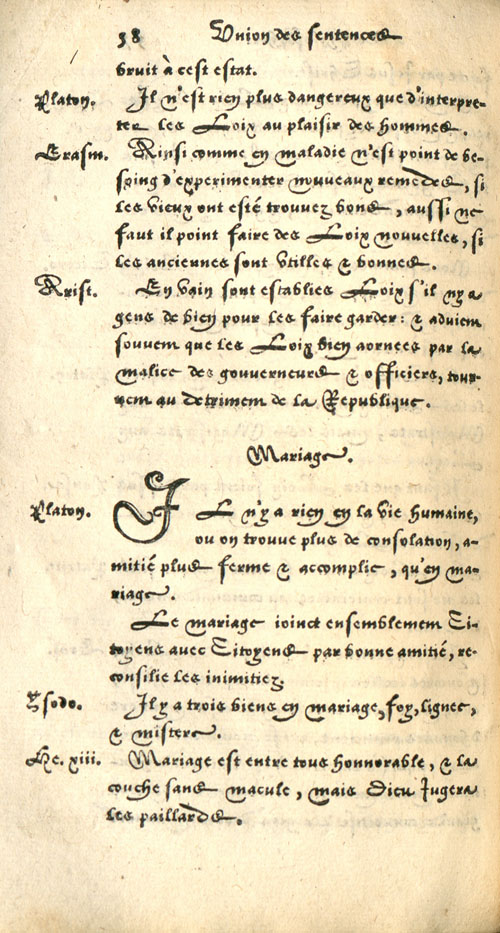 38 Vnion des sentences
bruit à cest estat.
Platon. Il n'est rien plus dangereux que d'interpre-
ter les Loix au plaisir des hommes.
Erasm. Ainsi comme en maladie n'est point de be-
soing d'experimenter nouveaux remedes, si
les vieux ont esté trouvez bons, aussi ne
faut il point faire des Loix nouvelles, si
les anciennes sont vtilles & bonnes.
Arist. En vain sont establies Loix s'il n'y a
gens de bien pour les faire garder: & advient
souvent que les Loix bien aornees par la
malice des gouverneurs & officiers, tour-
nent au detriment de la Republique.
Mariage.
Platon. IL n'y a rien en la vie humaine,
ou on trouve plus de consolation, a-
mitié plus ferme & accomplie, qu'en ma-
riage.
Le mariage ioinct ensemblement Ci-
toyens avec Citoyens par bonne amitié, re-
consilie les inimitiez.
Ysodo. Il y a trois biens en mariage, foy, lignee,
& mistere.
He. xiii. Mariage est entre tous honnorable, & la
couche sans macule, mais Dieu Iugera
les paillards.